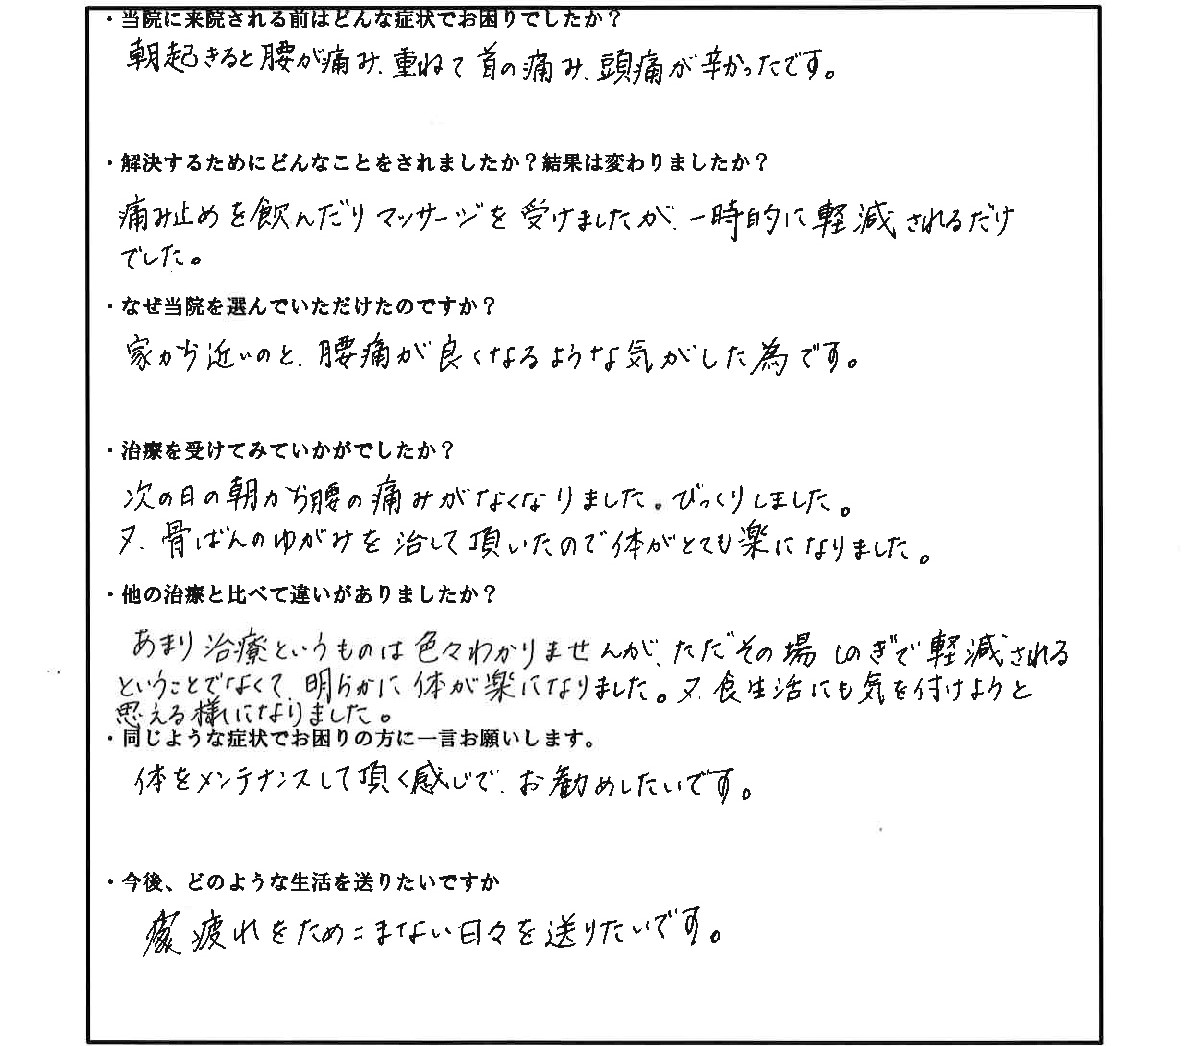 ・当院に来院される前はどんな症状でお困りでしたか？
朝起きると腰が痛み、重ねて首の痛み、頭痛が辛かったです。
・解決するためにどんなことをされましたか？結果は変わりましたか？
痛み止めを飲んだりマッサージを受けましたが、一時的に軽減されるだけ
でした。
・なぜ当院を選んでいただけたのですか？
家から近いのと、腰痛が良くなるような気がした為です。
・治療を受けてみていかがでしたか？
次の日の朝から腰の痛みがなくなりました。びっくりしました。
又、骨ばんのゆがみを治して頂いたので体がとても楽になりました。
・他の治療と比べて違いがありましたか？
あまり治療というものは色々わかりませんが、ただその場しのぎで軽減される
ということでなくて、明らかに体が楽になりました。又、食生活にも気を付けようと
思える様になりました。
・同じような症状でお困りの方に一言お願いします。
体をメンテナンスして頂く感じで、お勧めしたいです。
・今後、どのような生活を送りたいですか
疲れをためこまない日々を送りたいです。